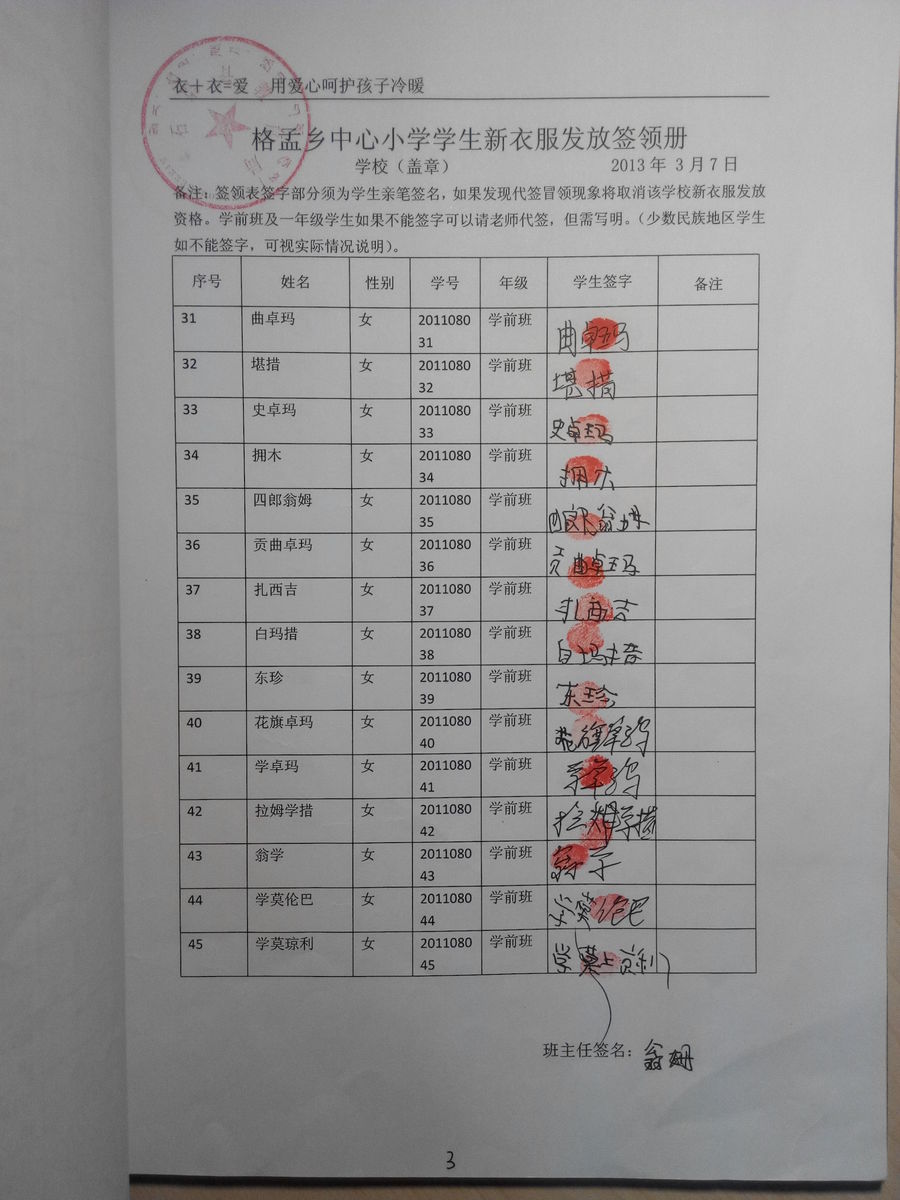 衣＋衣=爱 用爱心呵护孩子冷暖
格孟乡中心小学学生新衣服发放签领册
学校（盖章） 2013年3月7日
备注：签领表签字部分须为学生亲笔签名，如果发现代签冒领现象将取消该学校新衣服发放
资格。学前班及一年级学生如果不能签字可以请老师代签，但需写明。（少数民族地区学生
如不能签字，可视实际情况说明）。
序号 姓名 性别 学号 年级 学生签字 备注
31 曲卓玛 女 2011080 学前班
31 曲卓玛
32 堪措 女 2011080 学前班
32 堪措
33 史卓玛 女 2011080 学前班
33 史卓玛
34 拥木 女 2011080 学前班
34 拥木
35 四郎翁姆 女 2011080 学前班
35 四郎翁姆
36 贡曲卓玛 女 2011080 学前班
36 贡曲卓玛
37 扎西吉 女 2011080 学前班
37 扎西吉
38 白玛措 女 2011080 学前班
38 白玛措
39 东珍 女 2011080 学前班
39 东珍
40 花旗卓玛 女 2011080 学前班
40 花旗卓玛
41 学卓玛 女 2011080 学前班
41 学卓玛
42 拉姆学措 女 2011080 学前班
42 拉姆学措
43 翁学 女 2011080 学前班
43 翁学
44 学莫伦巴 女 2011080 学前班
44 学莫伦巴
45 学莫琼利 女 2011080 学前班
45 学莫琼利
班主任签名：翁姆
3